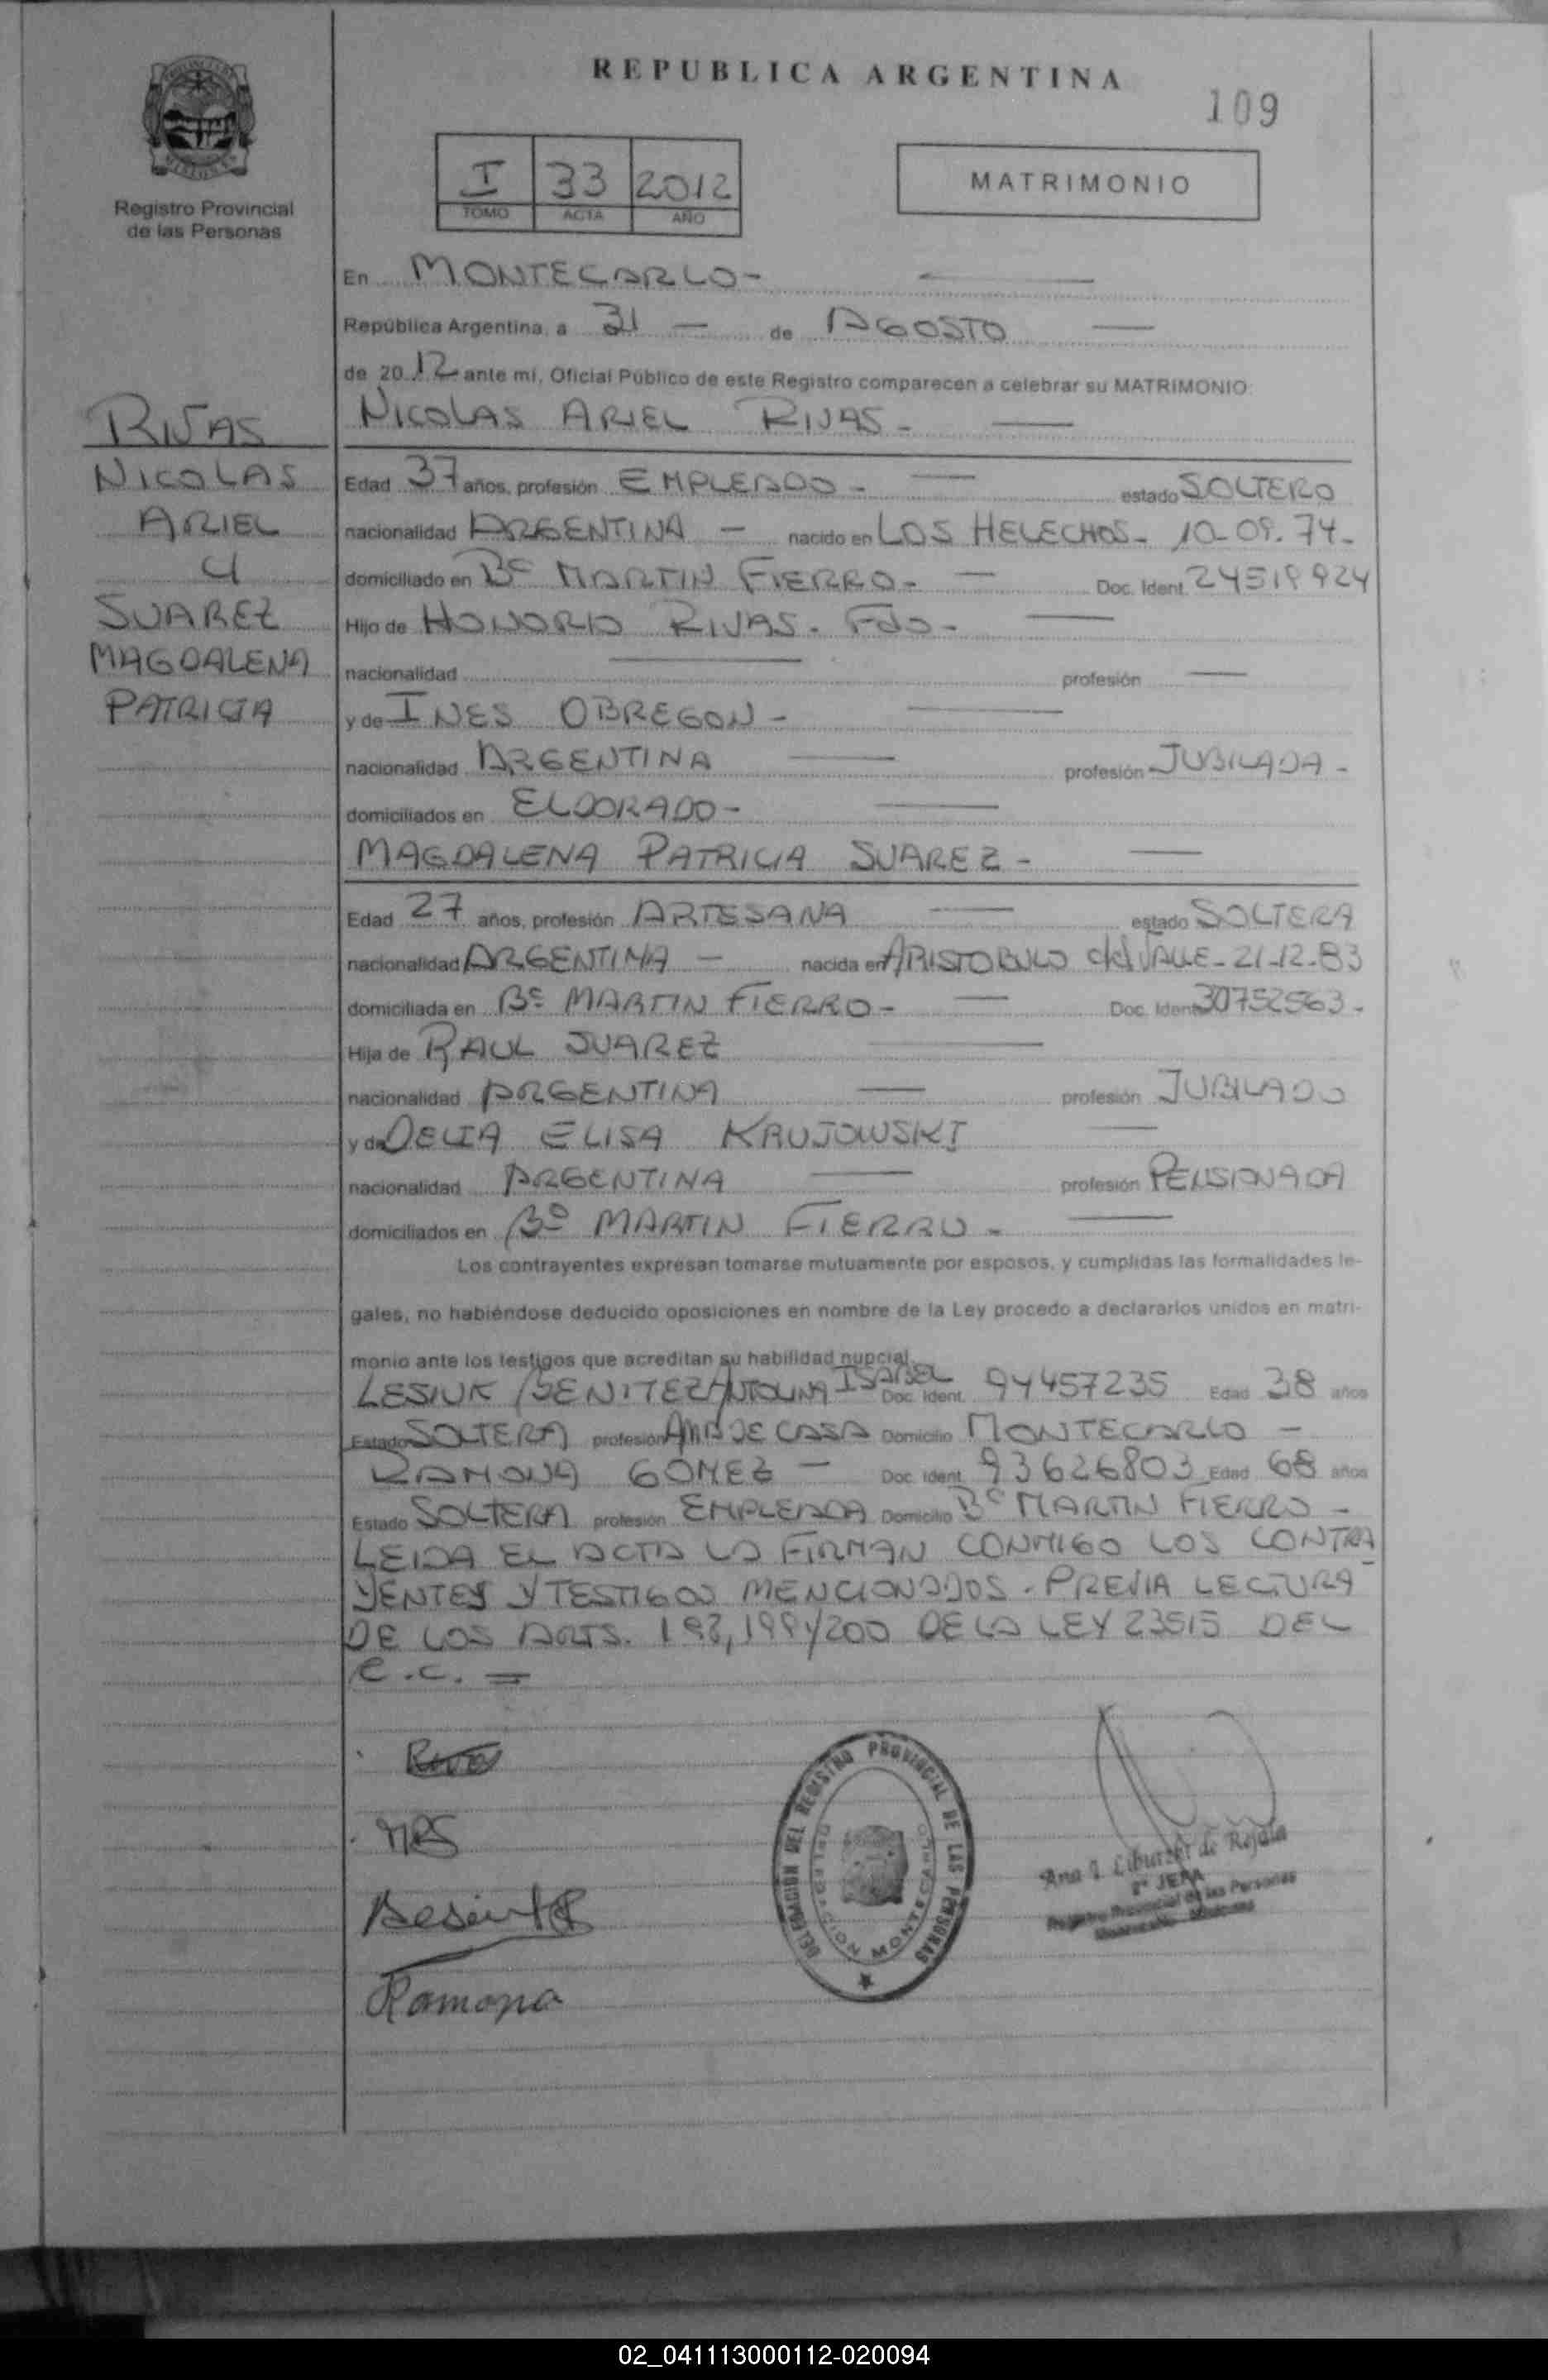 REPUBLICA ARGENTINA
109
Registro Provincial
de las Personas
I 33 2012
TOMO ACTA AÑO
MATRIMONIO
En MONTECARLO-
República Argentina, a 31 - de AGOSTO
de 2012 ante mí, Oficial Público de este Registro comparecen a celebrar su MATRIMONIO:
NICOLAS ARIEL RIVAS-
RIVAS
NICOLAS
ARIEL
Y
SUAREZ
MAGDALENA
PATRICIA
Edad 37 años, profesión EMPLEADO - estado SOLTERO
nacionalidad ARGENTINA - nacido en LOS HELECHOS- 10-09-74-
domiciliado en Bº MARTIN FIERRO- Doc. Ident. 24519924
Hijo de HONORIO RIVAS. Fdo-
nacionalidad profesión
y de INES OBREGON-
nacionalidad ARGENTINA profesión JUBILADA-
domiciliados en ELDORADO-
MAGDALENA PATRICIA SUAREZ-
Edad 27 años, profesión ARTESANA estado SOLTERA
nacionalidad ARGENTINA - nacida en ARISTOBULO del VALLE-21-12-83
domiciliada en Bº MARTIN FIERRO- Doc. Ident. 30752563-
Hija de RAUL SUAREZ
nacionalidad ARGENTINA profesión JUBILADO
y de DELIA ELISA KRUJOWSKI
nacionalidad ARGENTINA profesión PENSIONADA
domiciliados en Bº MARTIN FIERRO-
Los contrayentes expresan tomarse mutuamente por esposos, y cumplidas las formalidades le-
gales, no habiéndose deducido oposiciones en nombre de la Ley procedo a declararlos unidos en matri-
monio ante los testigos que acreditan su habilidad nupcial.
LESIUK BENITEZ ANTOLINA ISABEL Doc. Ident. 94457235 Edad 38 años
Estado SOLTERA profesión AMA DE CASA Domicilio MONTECARLO -
RAMONA GOMEZ - Doc. Ident. 93626803 Edad 68 años
Estado SOLTERA profesión EMPLEADA Domicilio Bº MARTIN FIERRO-
LEIDA EL ACTA LA FIRMAN CONMIGO LOS CONTRA
YENTES Y TESTIGOS MENCIONADOS. PREVIA LECTURA
DE LOS ARTS. 198, 199 y 200 DE LA LEY 23515 DEL
C.C. =
Rivas
MPS
DELEGACION DEL REGISTRO PROVINCIAL DE LAS PERSONAS
DELEGACION MONTECARLO
Jefa
Registro Provincial de las Personas
Ramona
02_041113000112-020094